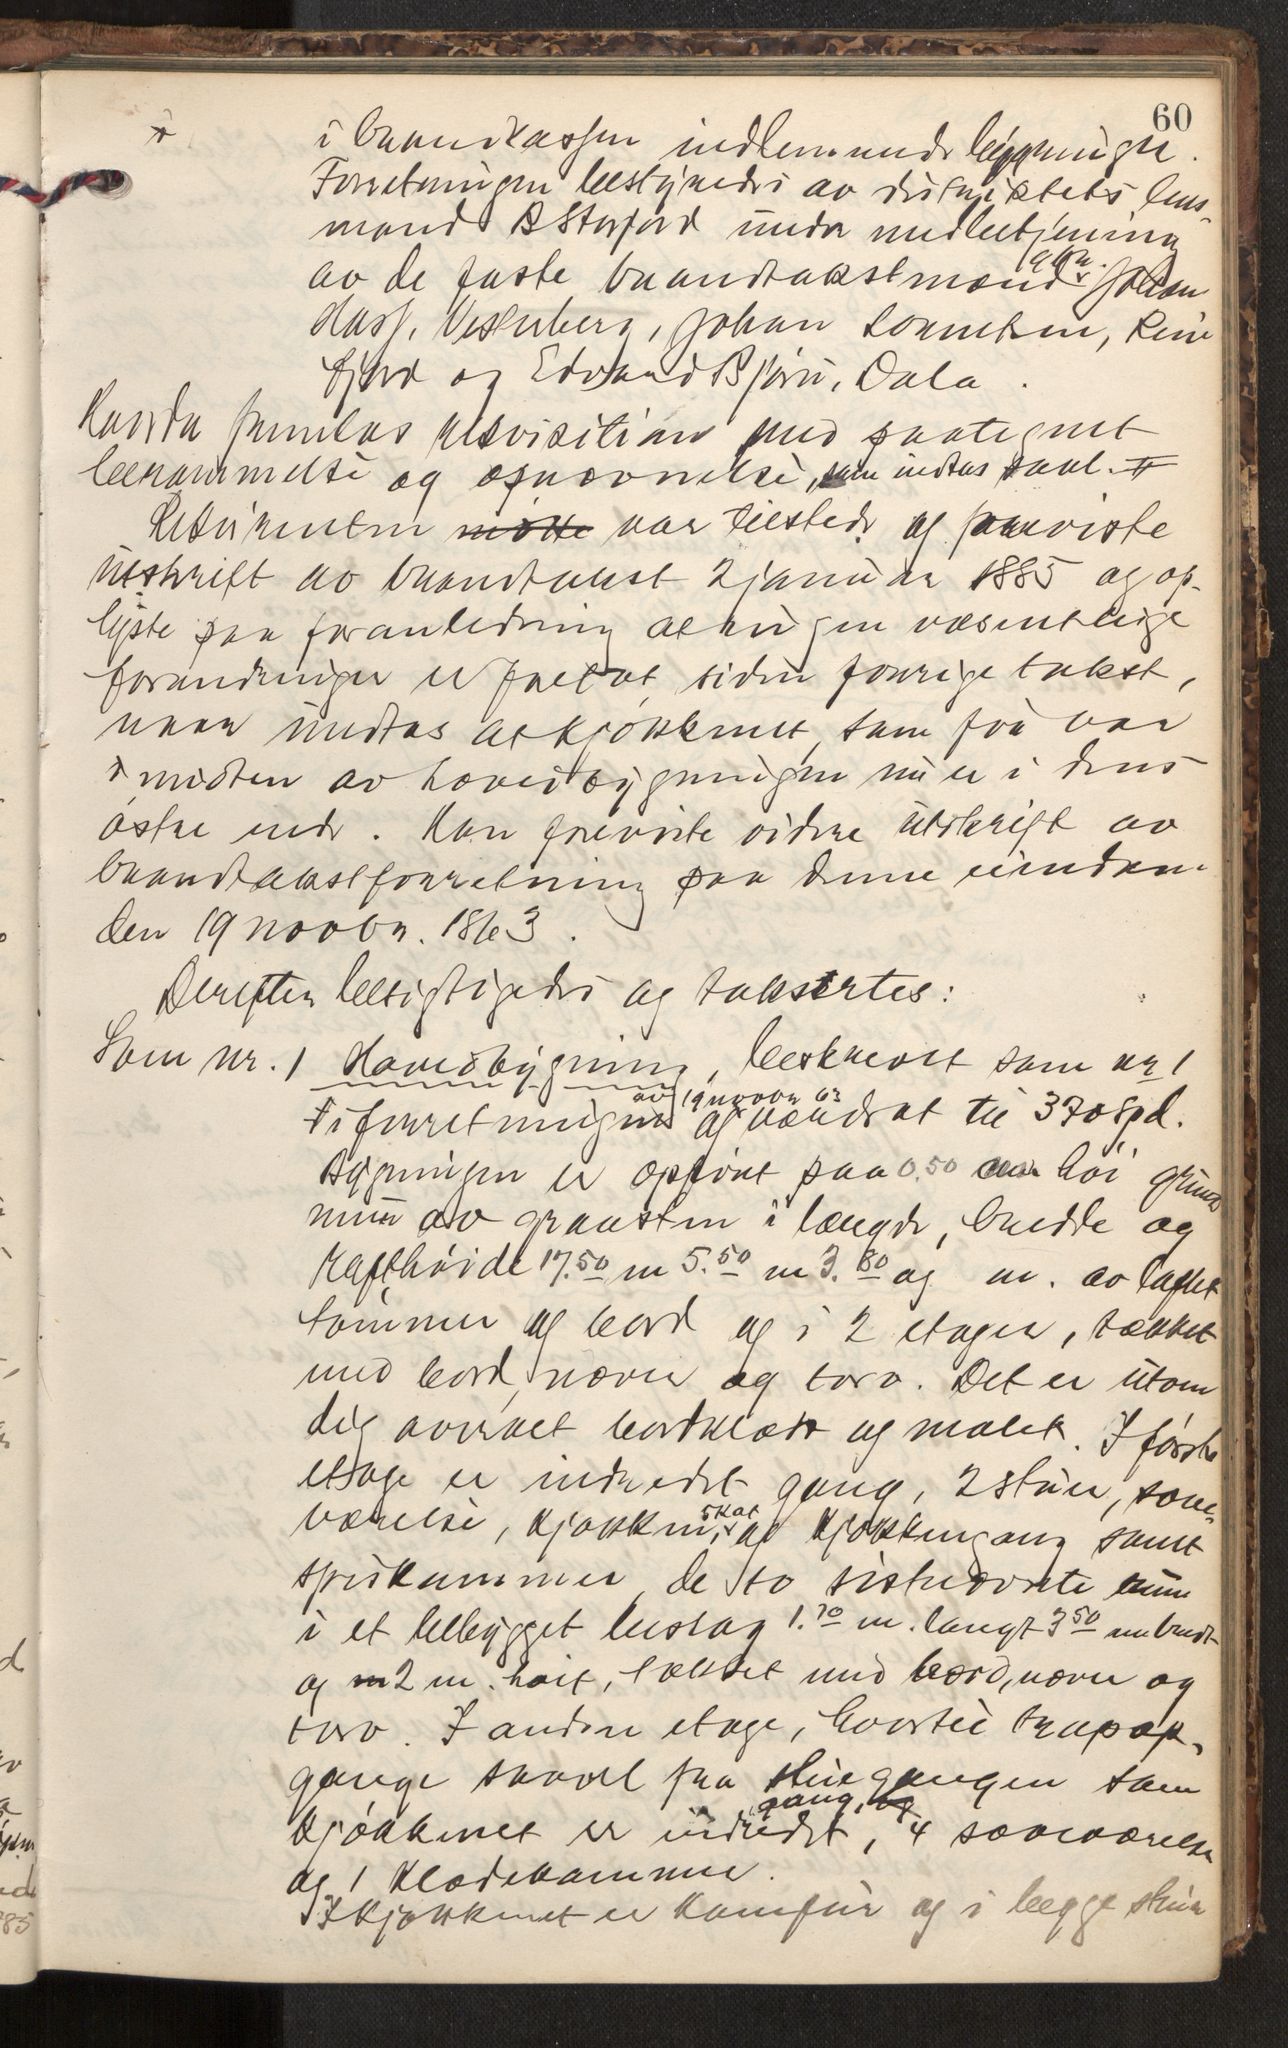 60
i brandkassen indlemmede bygninger.
Forretningen bestyredes av distriktets lens-
mand B Storfjord under medbetjening
av de faste brandtakstmænd Johan
Hass, Vesterberg, Johan Tommesen, Leir
fjord og Edvard Bjørn, Dala.
Hvorda fremlas rekvisition med paategnet
berammelse og opnævnelse, som indtas saal. #
Rekvirenten møtte var tilstede og foreviste
utskrift av brandtakst 2 januar 1885 og op-
lyste paa foranledning at ingen væsentlige
forandringer er foretat siden forrige takst,
naar undtas at kjøkkenet, som før var
i midten av hovedbygningen nu er i dens
østre ende. Han foreviste videre utskrift av
brandtakstforretning paa denne eiendom
den 19 novbr. 1863.
Derefter besigtigedes og takstertes:
Som nr. 1 Hovedbygning, beskrevet som nr 1
i forretningen av 19 novbr 63 og værdsat til 370 Spd.
Bygningen er opført paa 0.50 m høi grund
mur av graasten i længde, bredde og
rafthøide 17.50 m 5.50 m 3.80 og m. av laftet
tømmer og bord og i 2 etager, tækket
med bord, næver og torv. Det er utven
dig overalt bordklædt og malet. I første
etage er indredet gang, 2 stuer, sove-
værelse, kjøkken, skot og kjøkkengang samt
spiskammer, de to sistnævnte rum
i et tilbygget bislag 1.70 m. langt 3.50 m bredt
og 2 m. høit, tækket med bord, næver og
torv. I anden etage, hvortil trapop-
gange saavel fra stuegangen som
kjøkkenet er indredet, gang, og 4 soveværelser
og 1 klædekammer.
I kjøkkenet er komfur og i begge stuer